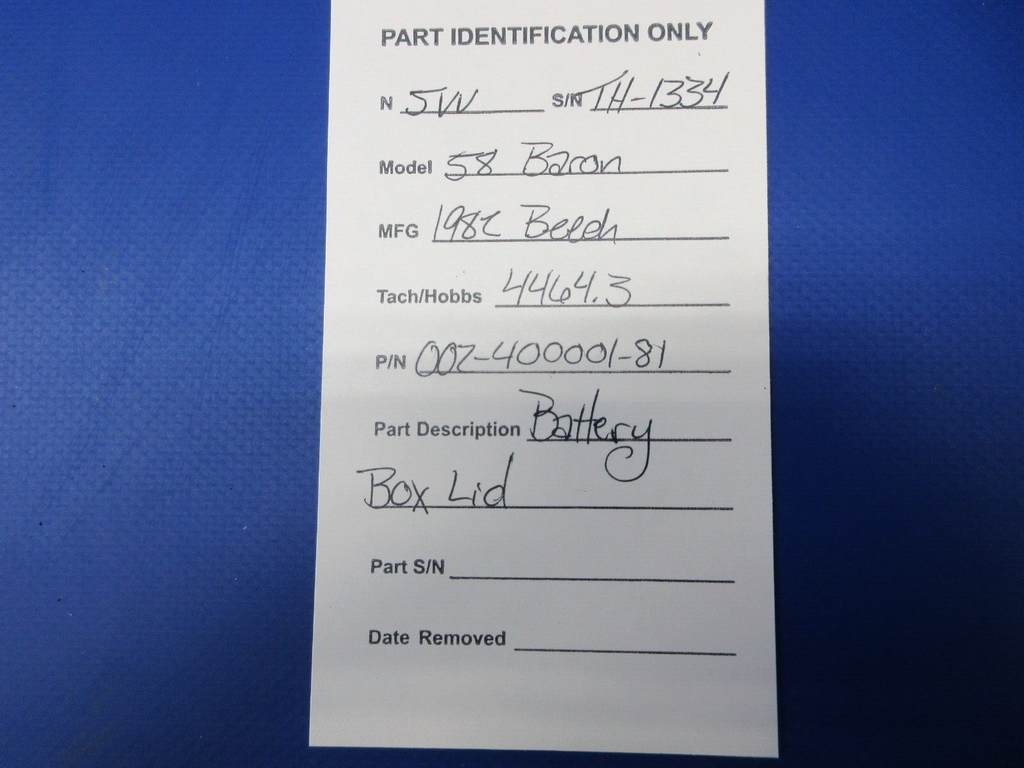 PART IDENTIFICATION ONLY
N 5VV S/N TH-1334
Model 58 Baron
MFG 1982 Beech
Tach/Hobbs 4464.3
P/N 002-400001-81
Part Description Battery
Box Lid
Part S/N
Date Removed